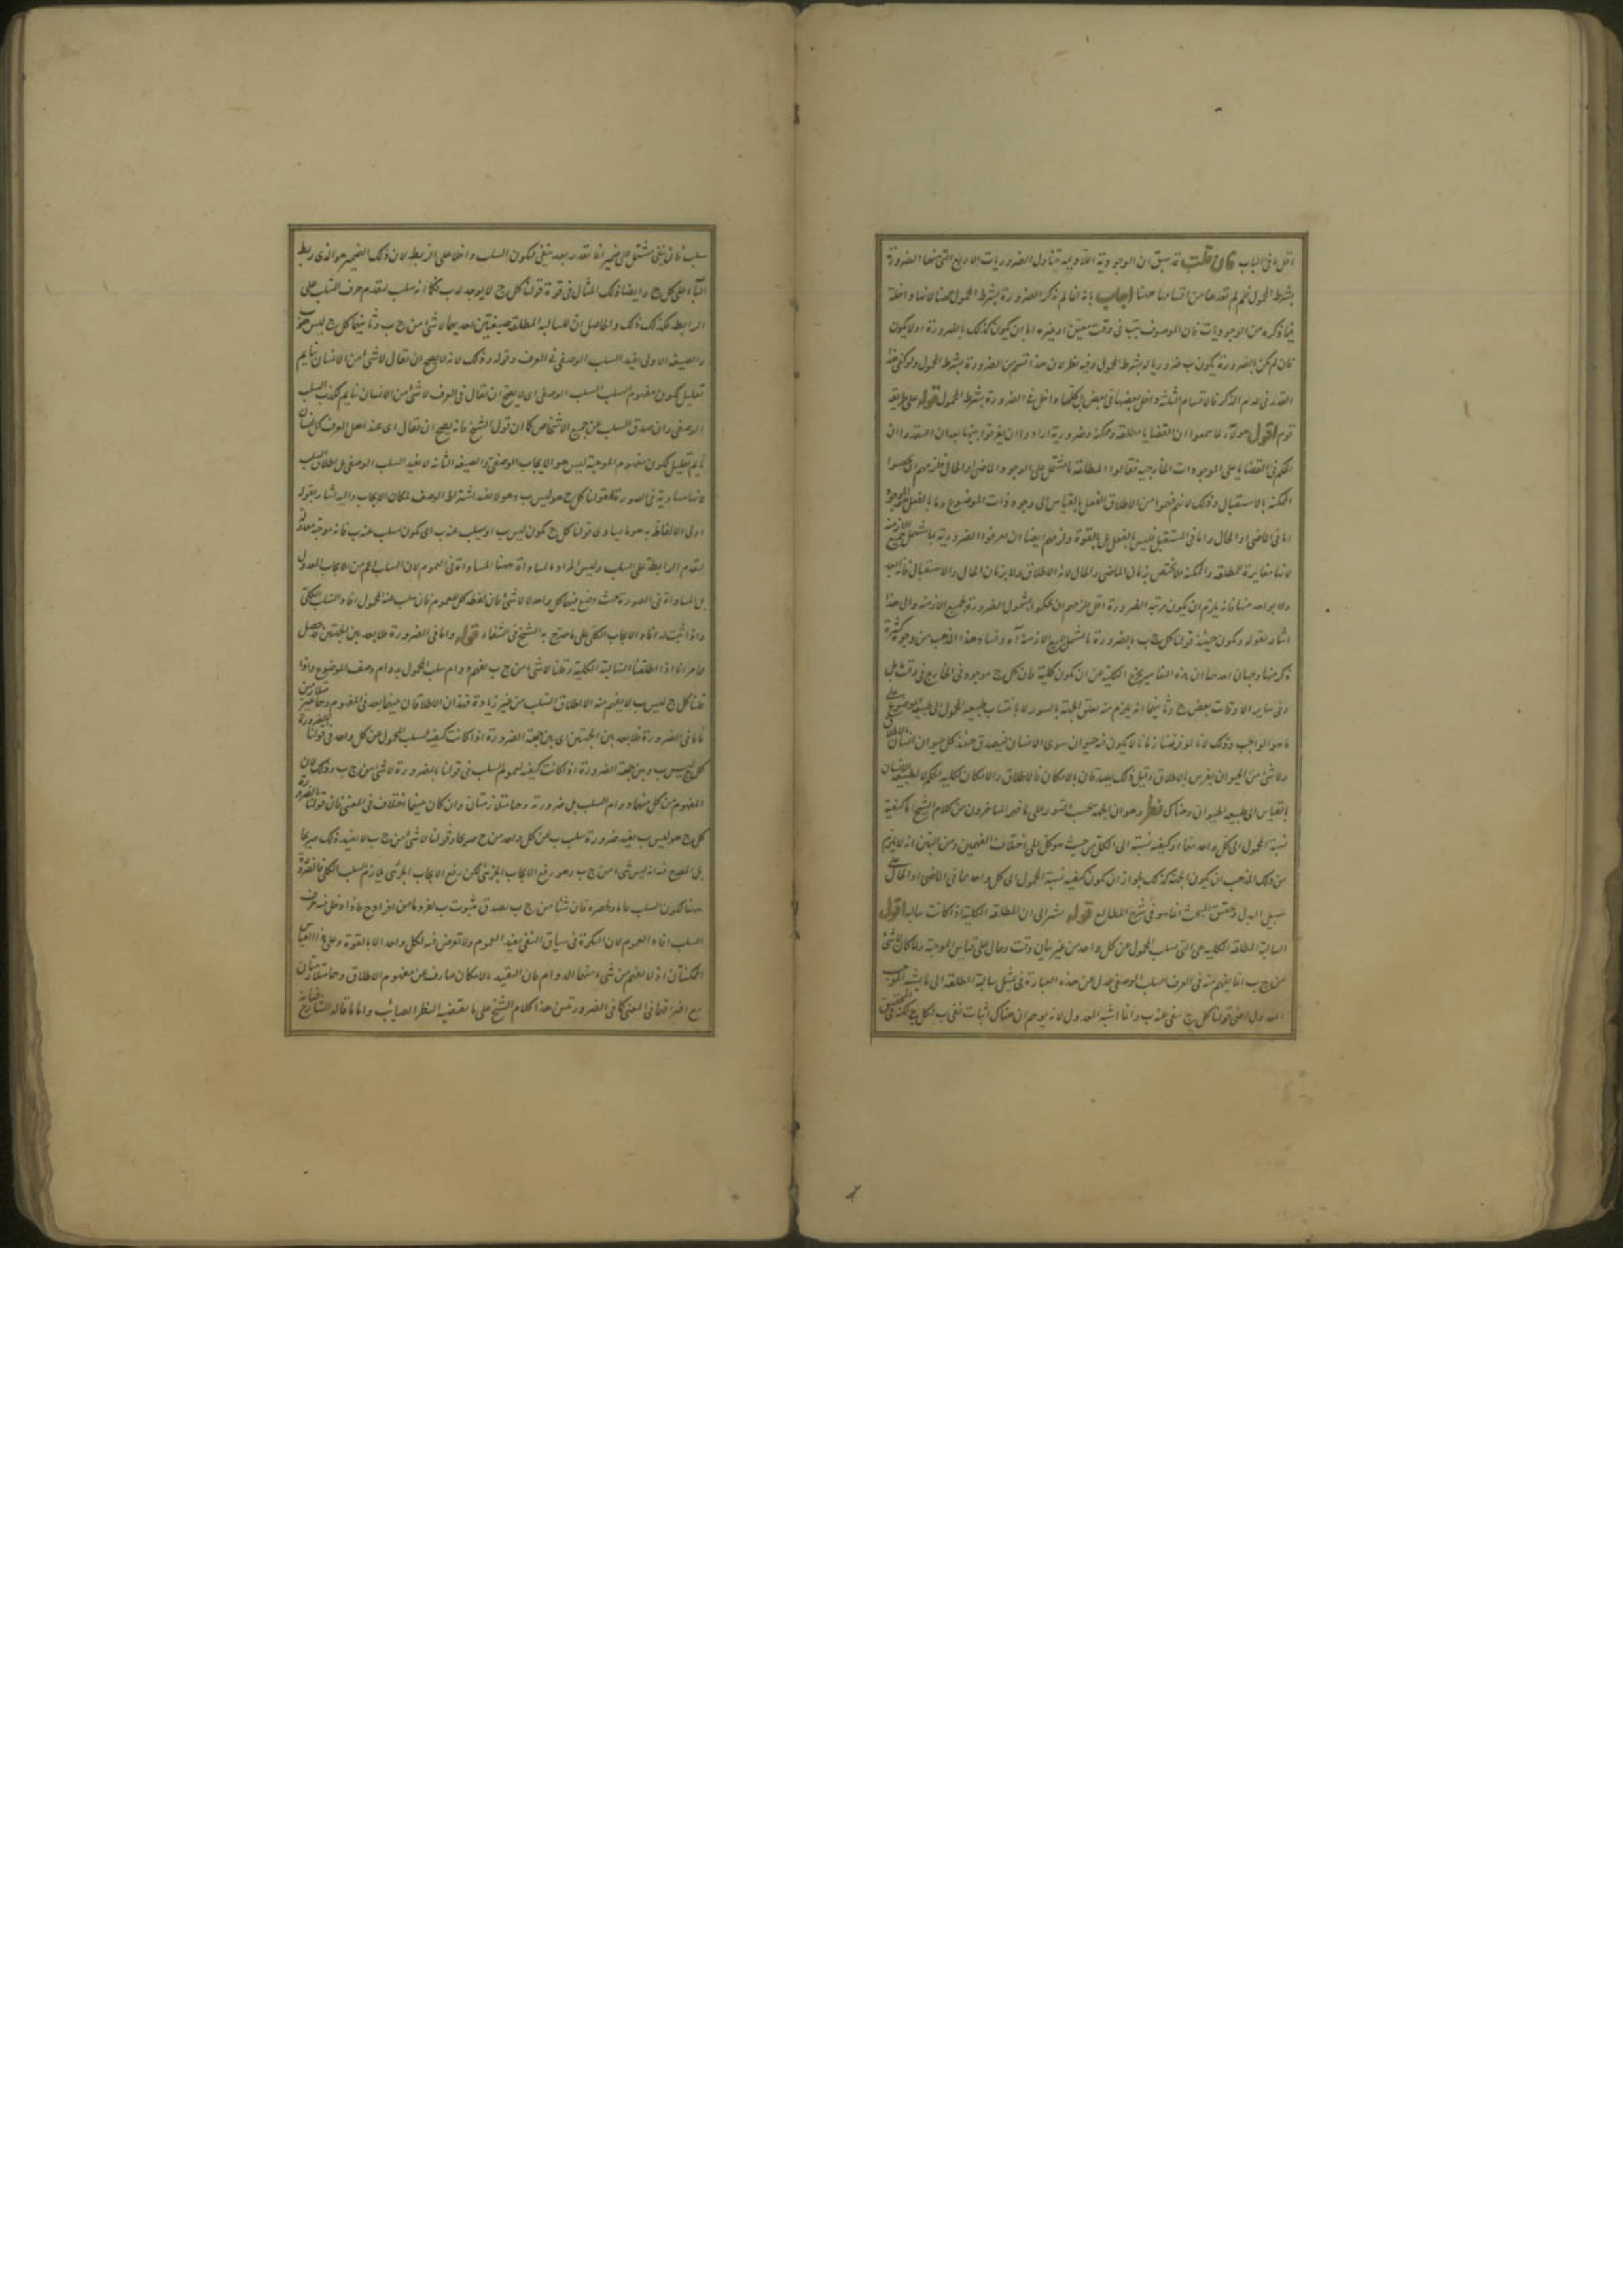 اقل ما فى الباب فان قلت قد سبق ان الوجودية اللادايمة تتناول الضروريات الاربع التى منها الضرورة
بشرط المحمول فلم لم تعدها من اقسامها ههنا اجاب بانه انما لم يذكر الضرورة بشرط المحمول ههنا لانها داخلة
فيما ذكره من الوجوديات فان الموصوف بب فى وقت معين او غيره اما ان يكون كذلك بالضرورة او لا يكون
فان لم يكن بالضرورة يكون ب ضروريا له بشرط المحمول وفيه نظر لان هذا قسم من الضرورة بشرط المحمول ولو كفى هذا
القدر فى عدم الذكر فالاقسام الثلثة داخل بعضها فى بعض بل كلها داخل فى الضرورة بشرط المحمول قوله على طريقة
قوم اقول هولاء لما سمعوا ان القضايا مطلقة وممكنة وضرورية ارادوا ان يفرقوا بينها بعد ان اعتقدوا ان
الحكم فى القضايا على الموجودات الخارجية فقالوا المطلقة ما يشتمل على الوجود الماضى او الحالى فلزمهم ان خصوا
الممكنة بالاستقبال وذلك لانهم فهموا من الاطلاق الفعل بالقياس الى وجود ذات الموضوع وما بالفعل هو الموجود
اما فى الماضى او الحال واما فى المستقبل فليس بالفعل بل بالقوة ولزمهم ايضا ان يعرفوا الضرورية بما يشمل جميع الازمنة
لانها مغايرة للمطلقة والممكنة فلا تختص بزمان الماضى والحال لانه الاطلاق ولا بزمان الحال والاستقبال
ولا بواحد منها فانه يلزم ان يكون مرتبة الضرورة اقل فلزمهم ان يحكموا بشمول الضرورة جميع الازمنة والى هذا
اشار بقوله ويكون حينئذ قولنا كل ج ب بالضرورة ما يشمل جميع الازمنة اه وفساد هذا المذهب من وجوه كثيرة
ذكر منها وجهان احدهما ان هذه التفاسير يخرج الكلية عن ان يكون كلية فان كل ج موجود فى الخارج فى وقت بل
وفى ساير الاوقات بعض ج وثانيهما انه يلزم منه تعلق الجهة بالسور لا بانتساب طبيعة المحمول الى طبيعة الموضوع على
ما هو الواجب وذلك لانا لو فرضنا زمانا لا يكون فيه حيوان سوى الانسان فيصدق حينئذ كل حيوان انسان بالاطلاق
ولا شئ من الحيوان بفرس بالاطلاق وقبل ذلك يصدقان بالامكان فالاطلاق والامكان لكلية الحكم لا لطبيعة الانسان
بالقياس الى طبيعة الحيوان وهناك نظر وهو ان الجهة بحسب السور على ما فهمه المتاخرون من كلام الشيخ اما كيفية
نسبة المحمول الى كل واحد معا او كيفية نسبته الى الكل من حيث هو كل على اختلاف الفهمين ومن البين انه لا يلزم
من ذلك المذهب ان يكون الجهة كذلك لجواز ان يكون كيفية نسبة المحمول الى كل واحد مما فى الماضى او الحال على
سبيل البدل وتحقيق المبحث انما هو فى شرح المطالع قوله يشير الى ان المطلقة الكلية اذا كانت سالبة اقول
السالبة المطلقة الكلية هى التى يسلب المحمول عن كل واحد من غير بيان وقت وحال على قياس الموجبة ولما كان لا شئ
من ج ب انما يفهم منه فى العرف السلب الوصفى عدل عن هذه العبارة فى تمثيل سالبة المطلقة الى ما يشبه الموجب
المعدول اعنى قولنا كل ج ينفى عنه ب وانما اشبه المعدول لانه يوهم ان هناك اثبات نفى ب لكل ج لكنه فى التحقيق
سلب فان ينفى مشتمل على ضمير انما تقدر بعد ينفى فيكون السلب داخلا على الربط لان ذلك الضمير هو الذى ربط
الباء على كل ج وايضا ذلك المثال فى قوة قولنا كل ج لا يوجد له ب فكما انه سلب لتقدم حرف السلب على
الرابطة فكذلك ذلك والحاصل ان للسالبة المطلقة صيغتين احديهما لا شئ من ج ب وثانيهما كل ج ليس هو ب
والصيغة الاولى تفيد السلب الوصفى فى العرف وقوله وذلك لانه لا يصح ان يقال لا شئ من الانسان نايم
تعليل لكون مفهوم السلب السلب الوصفى اى لا يصح ان يقال فى العرف لا شئ من الانسان نايم لكذب السلب
الوصفى وان صدق السلب عن جميع الاشخاص كما ان قول الشيخ فانه يصح ان يقال اى عند اهل العرف كل انسان
نايم تعليل لكون مفهوم الموجبة ليس هو الايجاب الوصفى والصيغة الثانية لا تفيد السلب الوصفى بل اطلاق السلب
لانها مساوية فى الصورة لقولنا كل ج هو ليس ب وهو لا يفيد اشتراط الوصف لمكان الايجاب واليه اشار بقوله
اولى الالفاظ به هو ما يساوى قولنا كل ج يكون ليس ب او يسلب عنه ب اى يكون السلب عنه ب فانه موجبة معدولة
لتقدم الرابطة على السلب وليس المراد بالمساواة ههنا المساواة فى العموم لان السلب اعم من الايجاب المعدول
بل المساواة فى الصورة حيث وضع فيهما كل واحد لا لا شئ فان لفظة كل للعموم فان سلب عنه المحمول افاد السلب الكلى
واذا اثبت له افاد الايجاب الكلى على ما صرح به الشيخ فى الشفاء قوله واما فى الضرورة فلا بعد بين الجهتين حصل
مما مر انا اذا اطلقنا السالبة الكلية وقلنا لا شئ من ج ب يفهم دوام سلب المحمول بدوام وصف الموضوع واذا
قلنا كل ج ليس ب لا يفهم منه الا اطلاق السلب من غير زيادة فهذان الاطلاقان بينهما بعد فى المفهوم
فاما فى الضرورة فلا بعد بين الجهتين اى بين جهة الضرورة اذا كانت كيفية لسلب المحمول عن كل واحد فى قولنا بالضرورة
كل ج ليس ب وبين جهة الضرورة اذا كانت كيفية لعموم السلب فى قولنا بالضرورة لا شئ من ج ب وذلك لان
المفهوم من كل منهما دوام السلب بل ضرورته وهما متلازمتان وان كان بينهما اختلاف فى المعنى فان قولنا بالضرورة
كل ج هو ليس ب يفيد ضرورة سلب ب عن كل واحد من ج صريحا وقولنا لا شئ من ج ب لا يفيد ذلك صريحا
بل الصريح فيه انه ليس شئ من ج ب وهو رفع الايجاب الجزئى لكن رفع الايجاب الجزئى يلازم السلب الكلى فالضرورة
ههنا لكون السلب عاما ولحصره فان شئا من ج ب يصدق بثبوت ب لفرد ما من افراد ج فاذا دخل فيه حرف
السلب افاد العموم لان النكرة فى سياق النفى تفيد العموم ولا تعرض فيه لكل واحد الا بالقوة وعلى هذا القياس
الممكنتان اذ لا يفهم من شئ منهما الدوام فان التقييد بالامكان صارف عن مفهوم الاطلاق وهما متلازمتان
مع افتراقهما فى المعنى كما فى الضرورتين هذا كلام الشيخ على ما يقتضيه النظر الصائب واما ما قاله الشارح